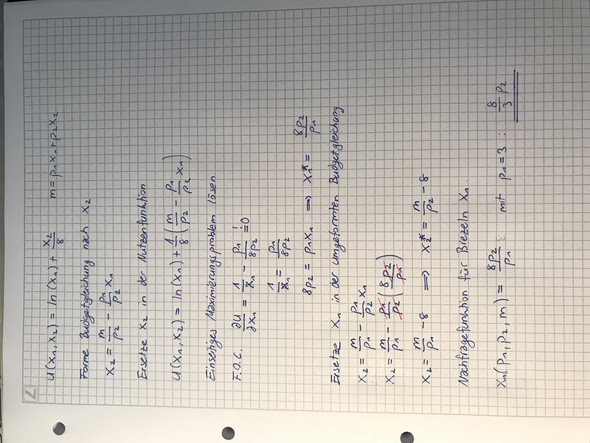 U(x₁,x₂) = ln(x₁) + x₂/8   m = p₁x₁+p₂x₂
Forme Budgetgleichung nach x₂
x₂ = m/p₂ - p₁/p₂ x₁
Ersetze x₂ in der Nutzenfunktion
U(x₁,x₂) = ln(x₁) + 1/8 (m/p₂ - p₁/p₂ x₁)
Einseitiges Maximierungsproblem lösen
F.O.C. ∂U/∂x₁ = 1/x₁ - p₁/8p₂ != 0
1/x₁ = p₁/8p₂
8p₂ = p₁x₁ ⟹ x₁* = 8p₂/p₁
Ersetze x₁ in der umgeformten Budgetgleichung
x₂ = m/p₁ - p₁/p₂ x₁
x₂ = m/p₁ - p₁/p₂ (8p₂/p₁)
x₂ = m/p₁ - 8 ⟹ x₂* = m/p₂ - 8
Nachfragefunktion für Brezeln x₁
x₁(p₁,p₂,m) = 8p₂/p₁ mit p₁=3 : 8/3 p₂